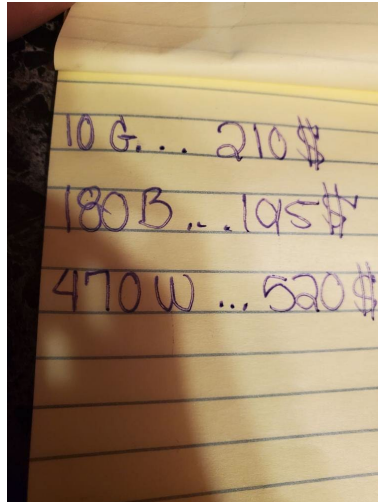 10 G... 210$
180 B... 195$
470 W ... 520$